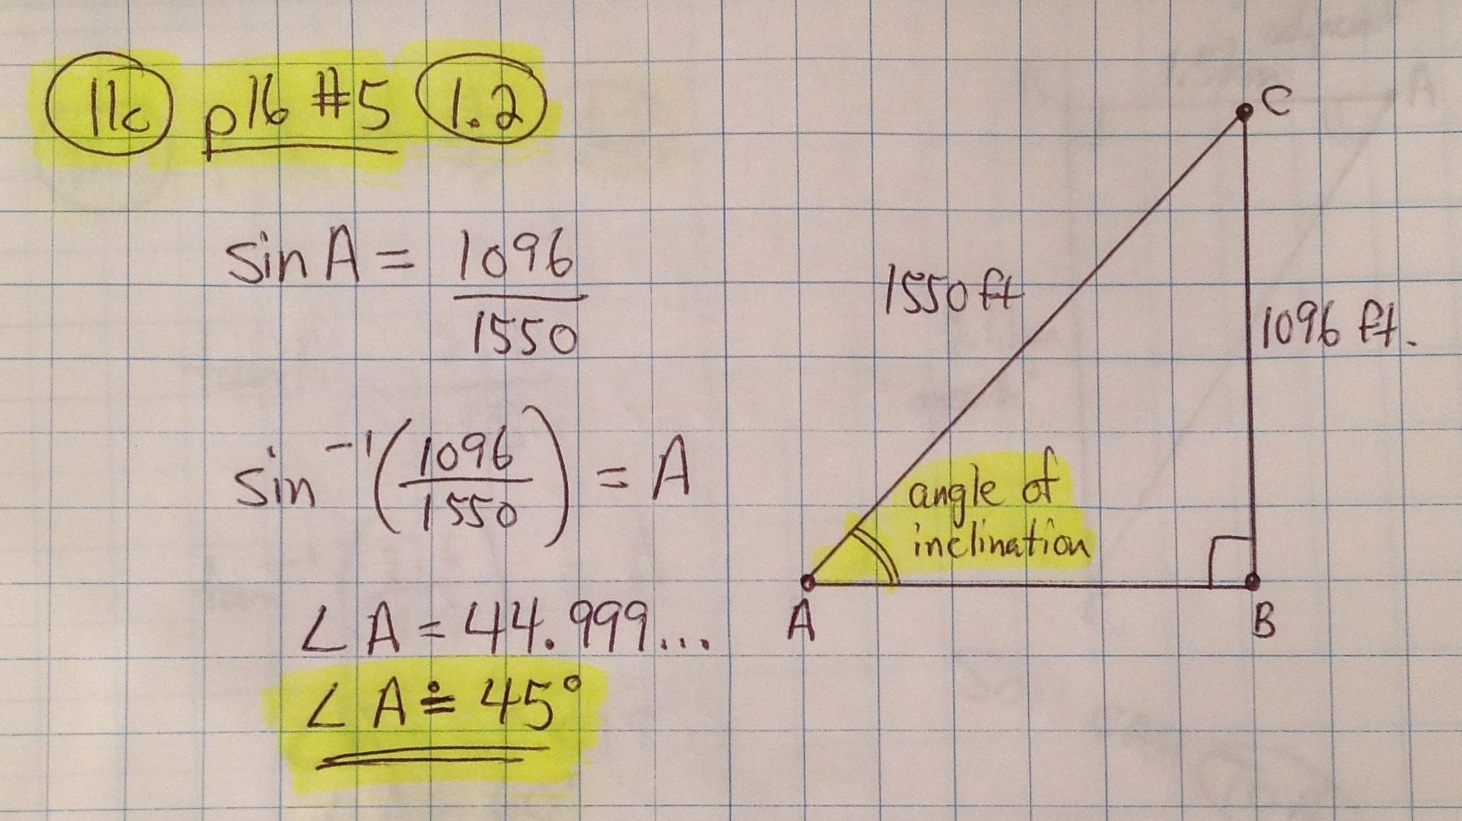 11c p16 #5 1.2
sin A = 1096
1550
sin⁻¹(1096/1550) = A
∠A = 44.999...
∠A ≐ 45°
C
1550 ft
1096 ft.
angle of
inclination
A
B